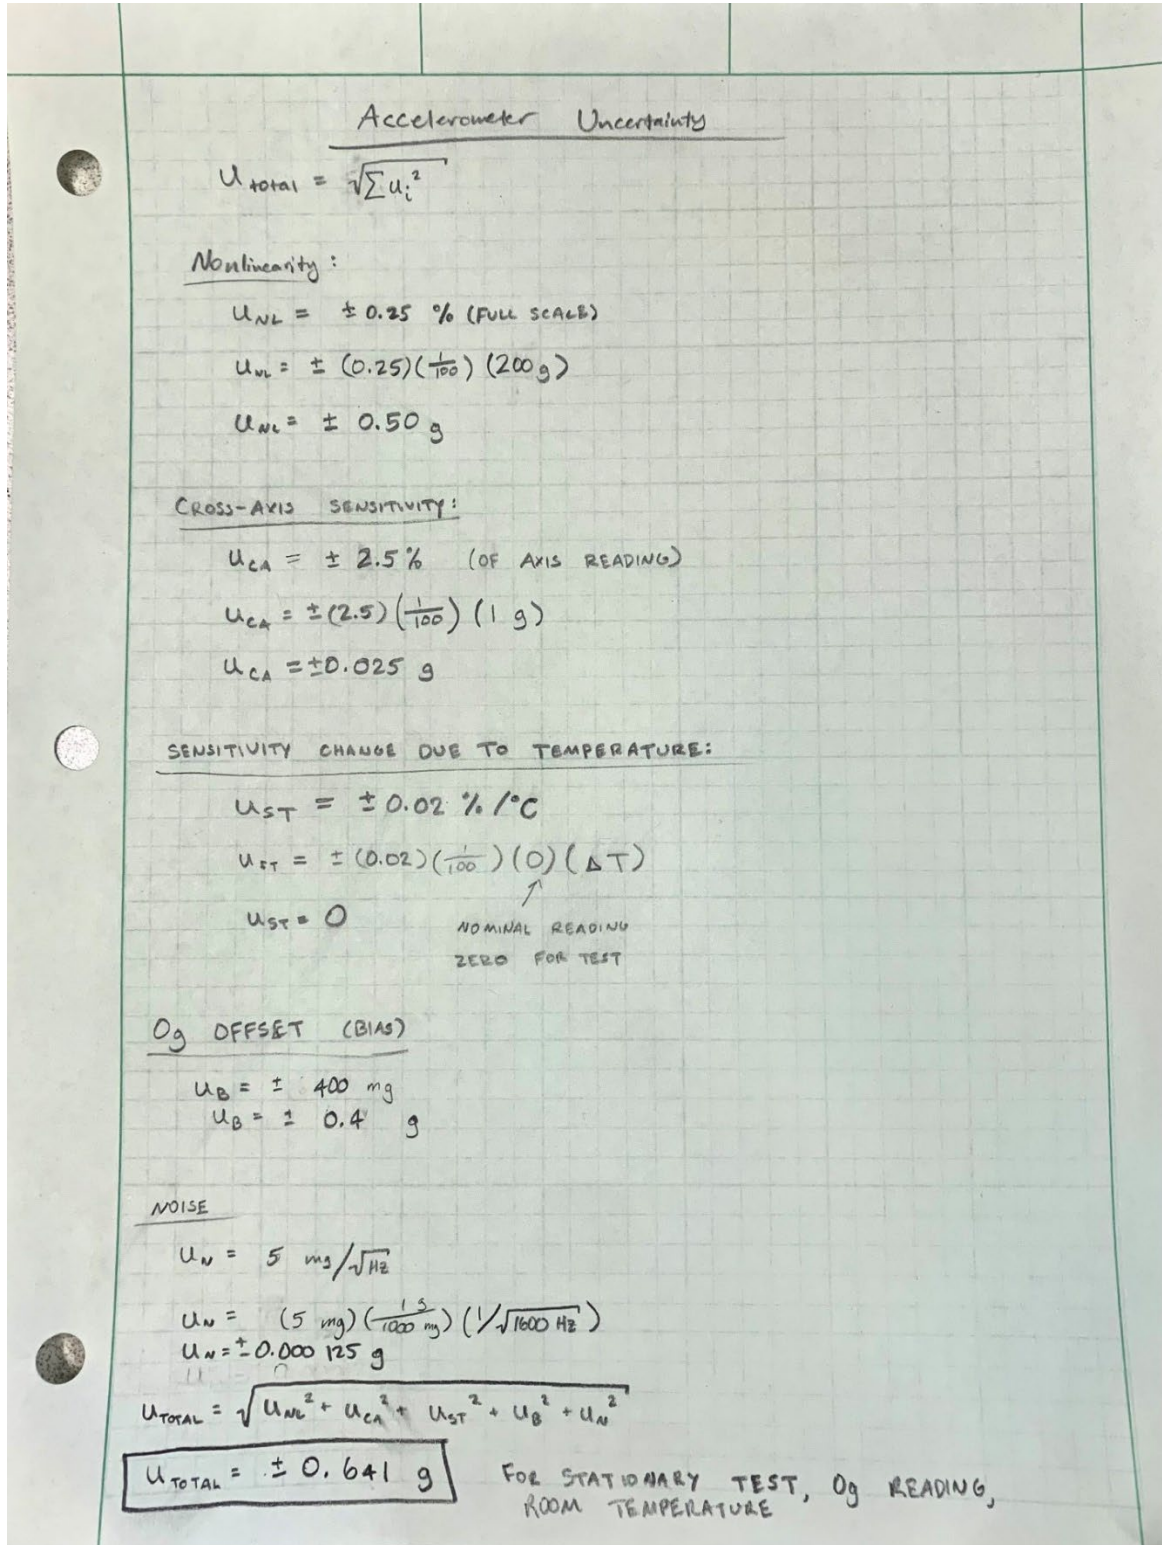 Accelerometer Uncertainty
U total = √Σ uᵢ²
Nonlinearity:
U NL = ± 0.25 % (FULL SCALE)
U NL = ± (0.25)(1/100)(200g)
U NL = ± 0.50 g
CROSS-AXIS SENSITIVITY:
U CA = ± 2.5% (OF AXIS READING)
U CA = ±(2.5)(1/100)(1 g)
U CA = ±0.025 g
SENSITIVITY CHANGE DUE TO TEMPERATURE:
U ST = ± 0.02 % /°C
U ST = ± (0.02)(1/100)(0)(ΔT)
U ST = 0
NOMINAL READING
ZERO FOR TEST
0g OFFSET (BIAS)
U B = ± 400 mg
U B = ± 0.4 g
NOISE
U N = 5 mg/√Hz
U N = (5 mg)(1 g/1000 mg)(1/√1600 Hz)
U N = ±0.000 125 g
U TOTAL = √U NL² + U CA² + U ST² + U B² + U N²
U TOTAL = ± 0.641 g
FOR STATIONARY TEST, 0g READING,
ROOM TEMPERATURE